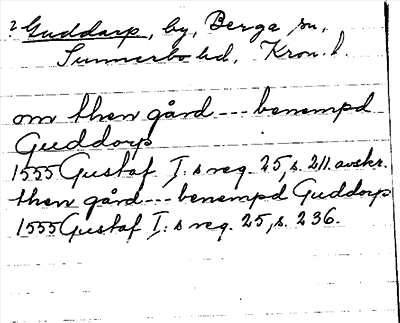 2 Guddarp, by, Berga sn,
Sunnerbo hd, Kron. l.
om then gård --- benempd
Guddorp
1555 Gustaf I:s reg. 25, s. 211. avskr.
then gård --- benempd Guddorp
1555 Gustaf I:s reg. 25, s. 236.